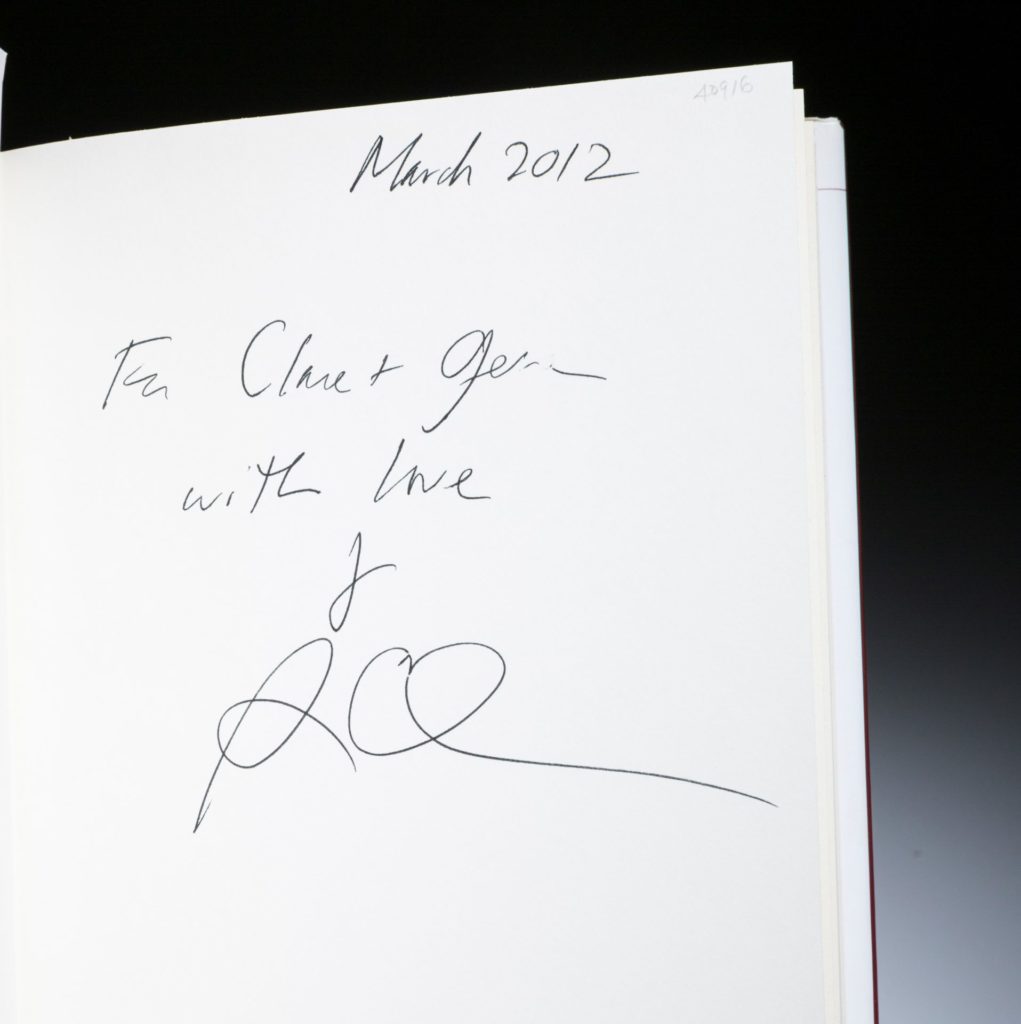 40916
March 2012
For Clare +
with love